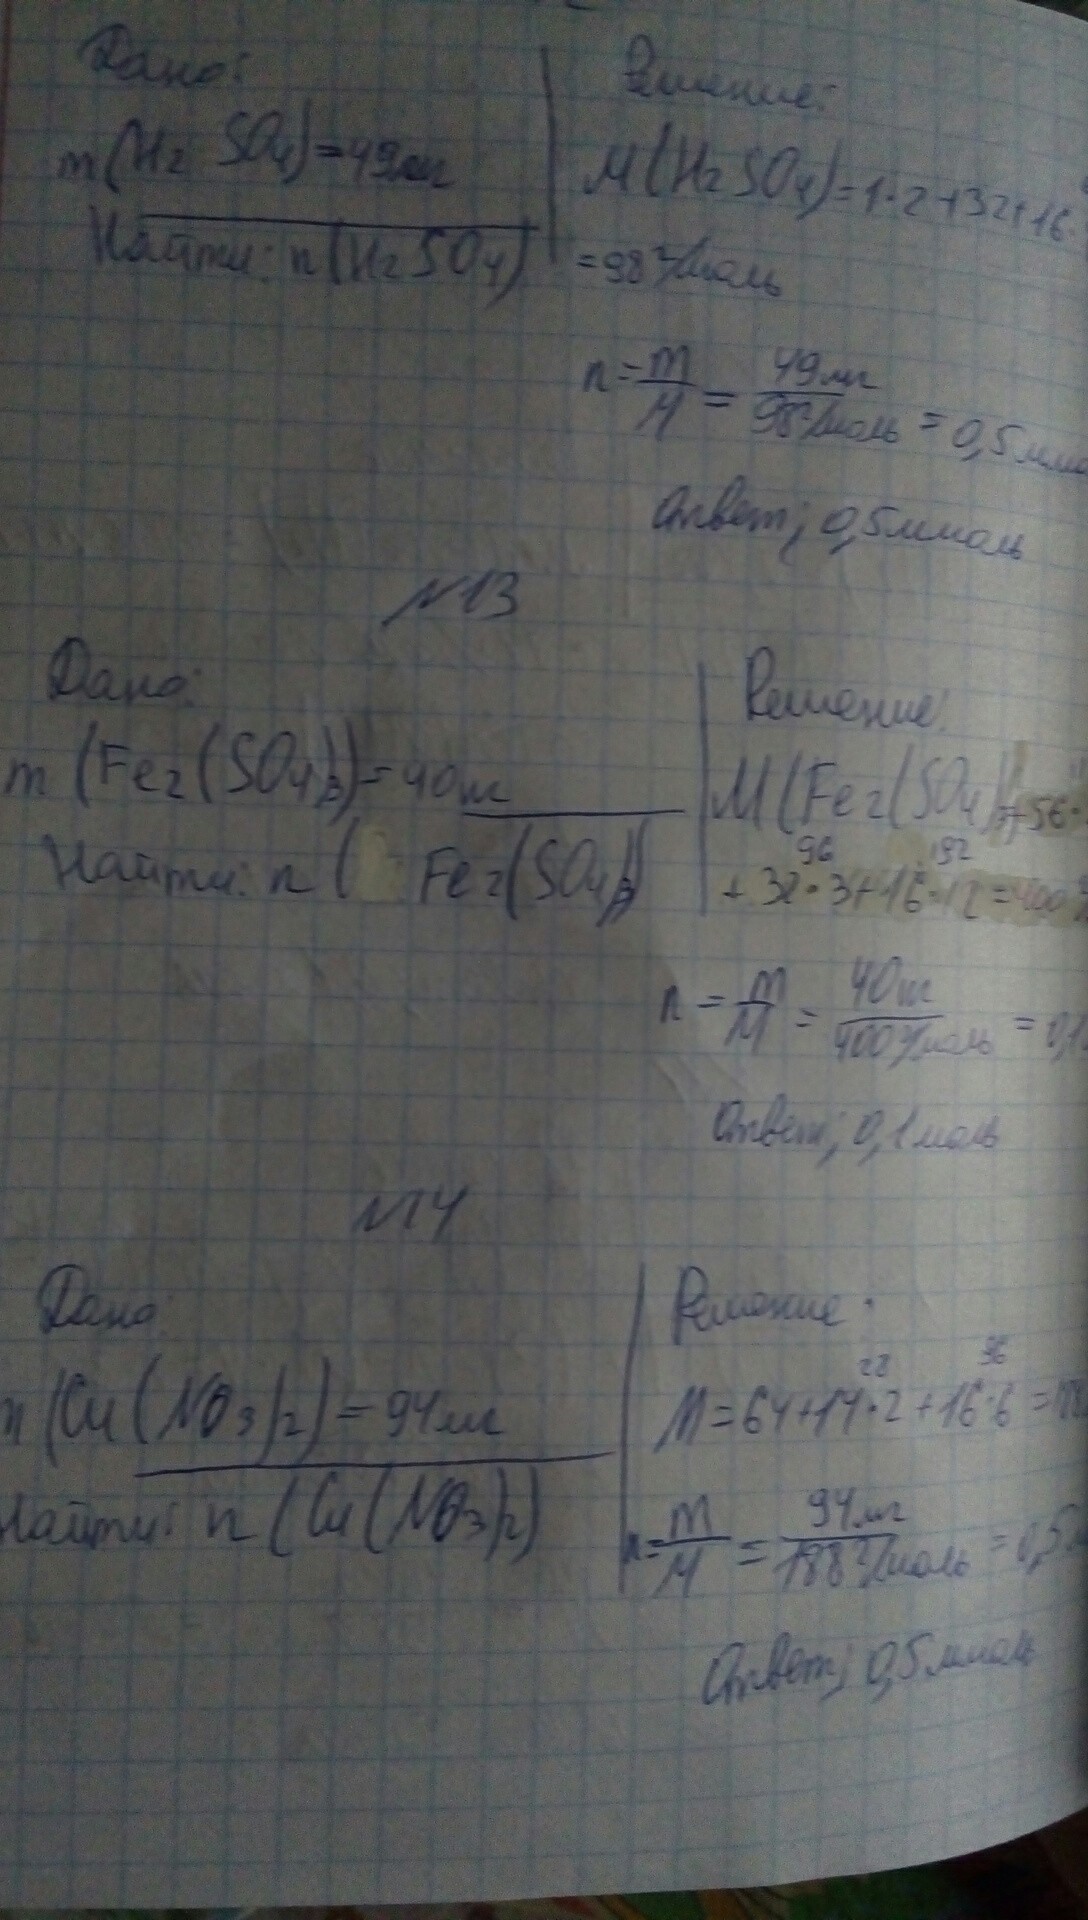 Дано:
m(H₂SO₄)=49мг
Найти: n(H₂SO₄)
Решение:
M(H₂SO₄)=1·2+32+16·
=98г/моль
n=m/M=49мг/98г/моль=0,5ммо
Ответ; 0,5ммоль
№13
Дано:
m(Fe₂(SO₄)₃)=40т
Найти: n(Fe₂(SO₄)₃)
Решение:
M(Fe₂(SO₄)₃)=56·
96 192
+32·3+16·12=400
n=m/M=40т/400г/моль=0,1
Ответ; 0,1моль
№14
Дано
m(Cu(NO₃)₂)=94мг
Найти: n(Cu(NO₃)₂)
Решение:
28 96
M=64+14·2+16·6=188
n=m/M=94мг/188г/моль=0,5
Ответ; 0,5ммоль